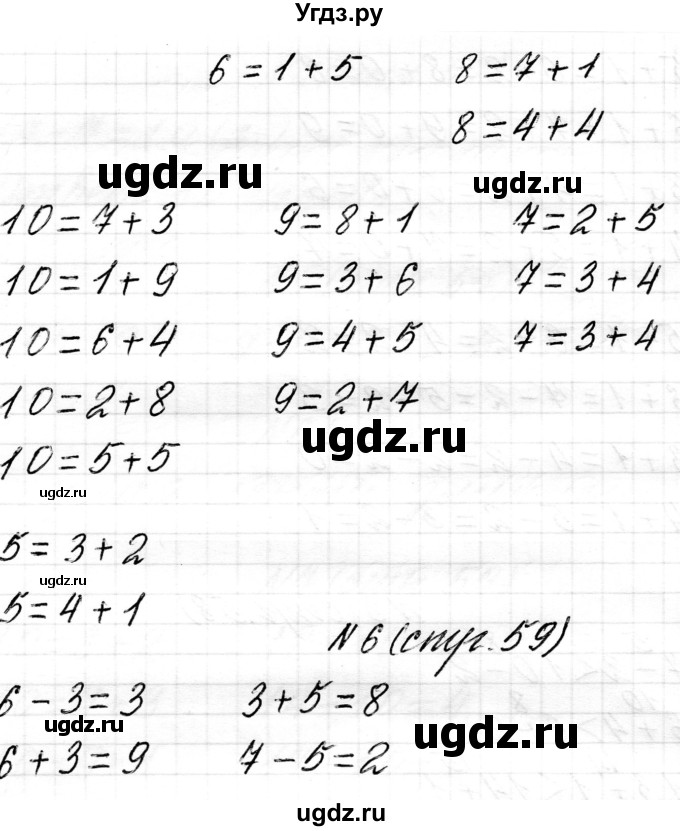 Угдз.ру
6 = 1 + 5 8 = 7 + 1
8 = 4 + 4
ugdz.ru
ugdz.ru
10 = 7 + 3 9 = 8 + 1 7 = 2 + 5
10 = 1 + 9 9 = 3 + 6 7 = 3 + 4
10 = 6 + 4 9 = 4 + 5 7 = 3 + 4
10 = 2 + 8 9 = 2 + 7
ugdz.ru
10 = 5 + 5
ugdz.ru
5 = 3 + 2
ugdz.ru
5 = 4 + 1
№ 6 (стр. 59)
6 - 3 = 3 3 + 5 = 8
ugdz.ru ugdz.ru
6 + 3 = 9 7 - 5 = 2
ugdz.ru